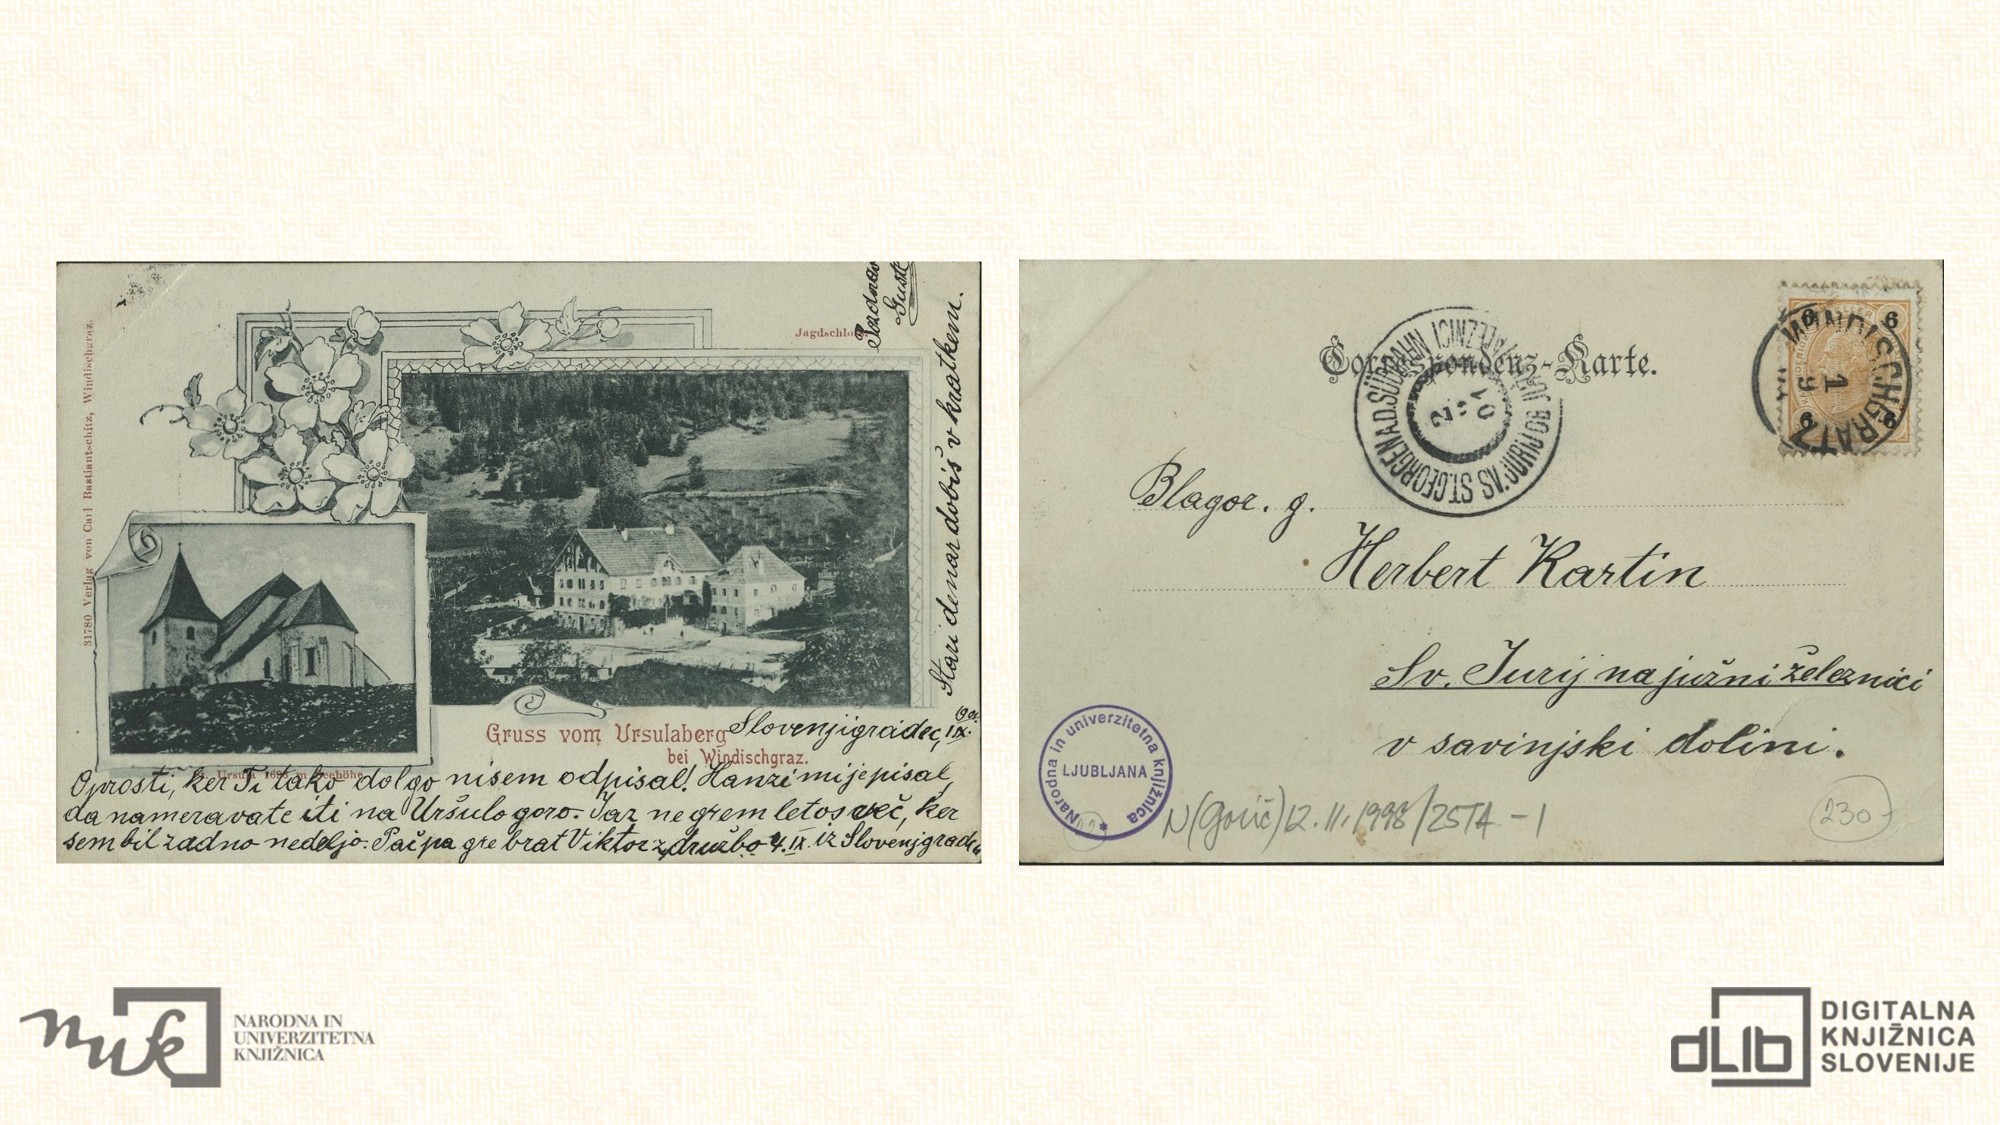 31780 Verlag von Carl Bastiantschitz, Windischgraz.
Gustl
Stari denar dobiš v kratkem.
Gruss vom Ursulaberg
bei Windischgraz.
Slovenjigradec, 1. IX. 1901.
St. Ursula m Seehöhe
Oprosti, ker Ti tako dolgo nisem odpisal! Hanzi mi je pisal,
da nameravate iti na Uršulo goro. Jaz ne grem letos več, ker
sem bil zadno nedeljo. Pač pa gre brat Viktor z družbo 4. IX. iz Slovenjgradca
Correspondenz-Karte.
ST. GEORGEN A.D. SÜDBAHN
SV. JURIJ OB JUŽ. ŽELEZNICI
2 9 01
6 6
6 6
WINDISCHGRATZ
1 9
Blagor. g.
Herbert Kartin
Sv. Jurij na južni železnici
v savinjski dolini.
Narodna in univerzitetna knjižnica
LJUBLJANA
N(Goiič) 12.11.1998/25TA-1
230-
nuk
NARODNA IN
UNIVERZITETNA
KNJIŽNICA
dLib
DIGITALNA
KNJIŽNICA
SLOVENIJE